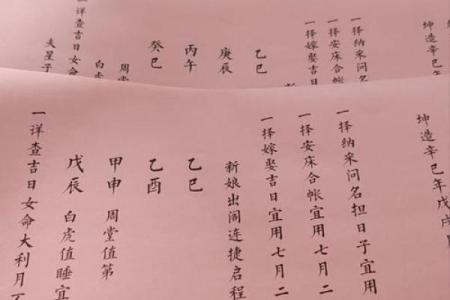 一择纳采问名
一择安床合帐
一择嫁娶吉日
乙巳
庚辰
丙午
癸巳
周堂
白虎
一详查吉日女命
夫星子
坤造辛巳年戊戌
一择纳采问名担日子宜用
一择安床合帐宜用七月二
一择嫁娶吉日宜用七月二
新娘出阁连捷启程
乙巳
乙酉
甲申 周堂值第
戊辰 白虎值睡宜
一详查吉日女命大利月